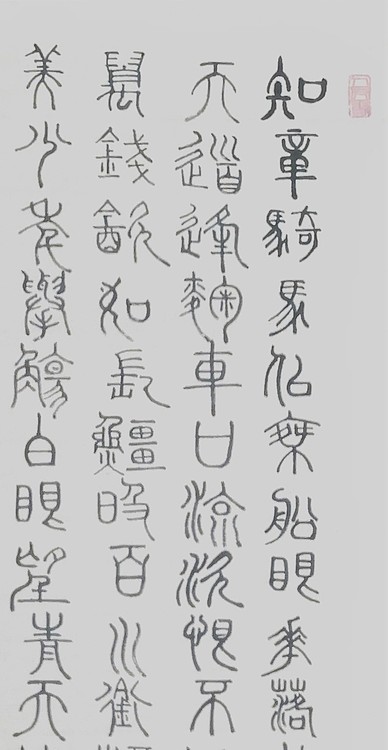 知章騎馬似乘船眼花落
天道逢麴車口流涎恨不
萬錢飲如長鯨吸百川銜
美少年舉觴白眼望青天